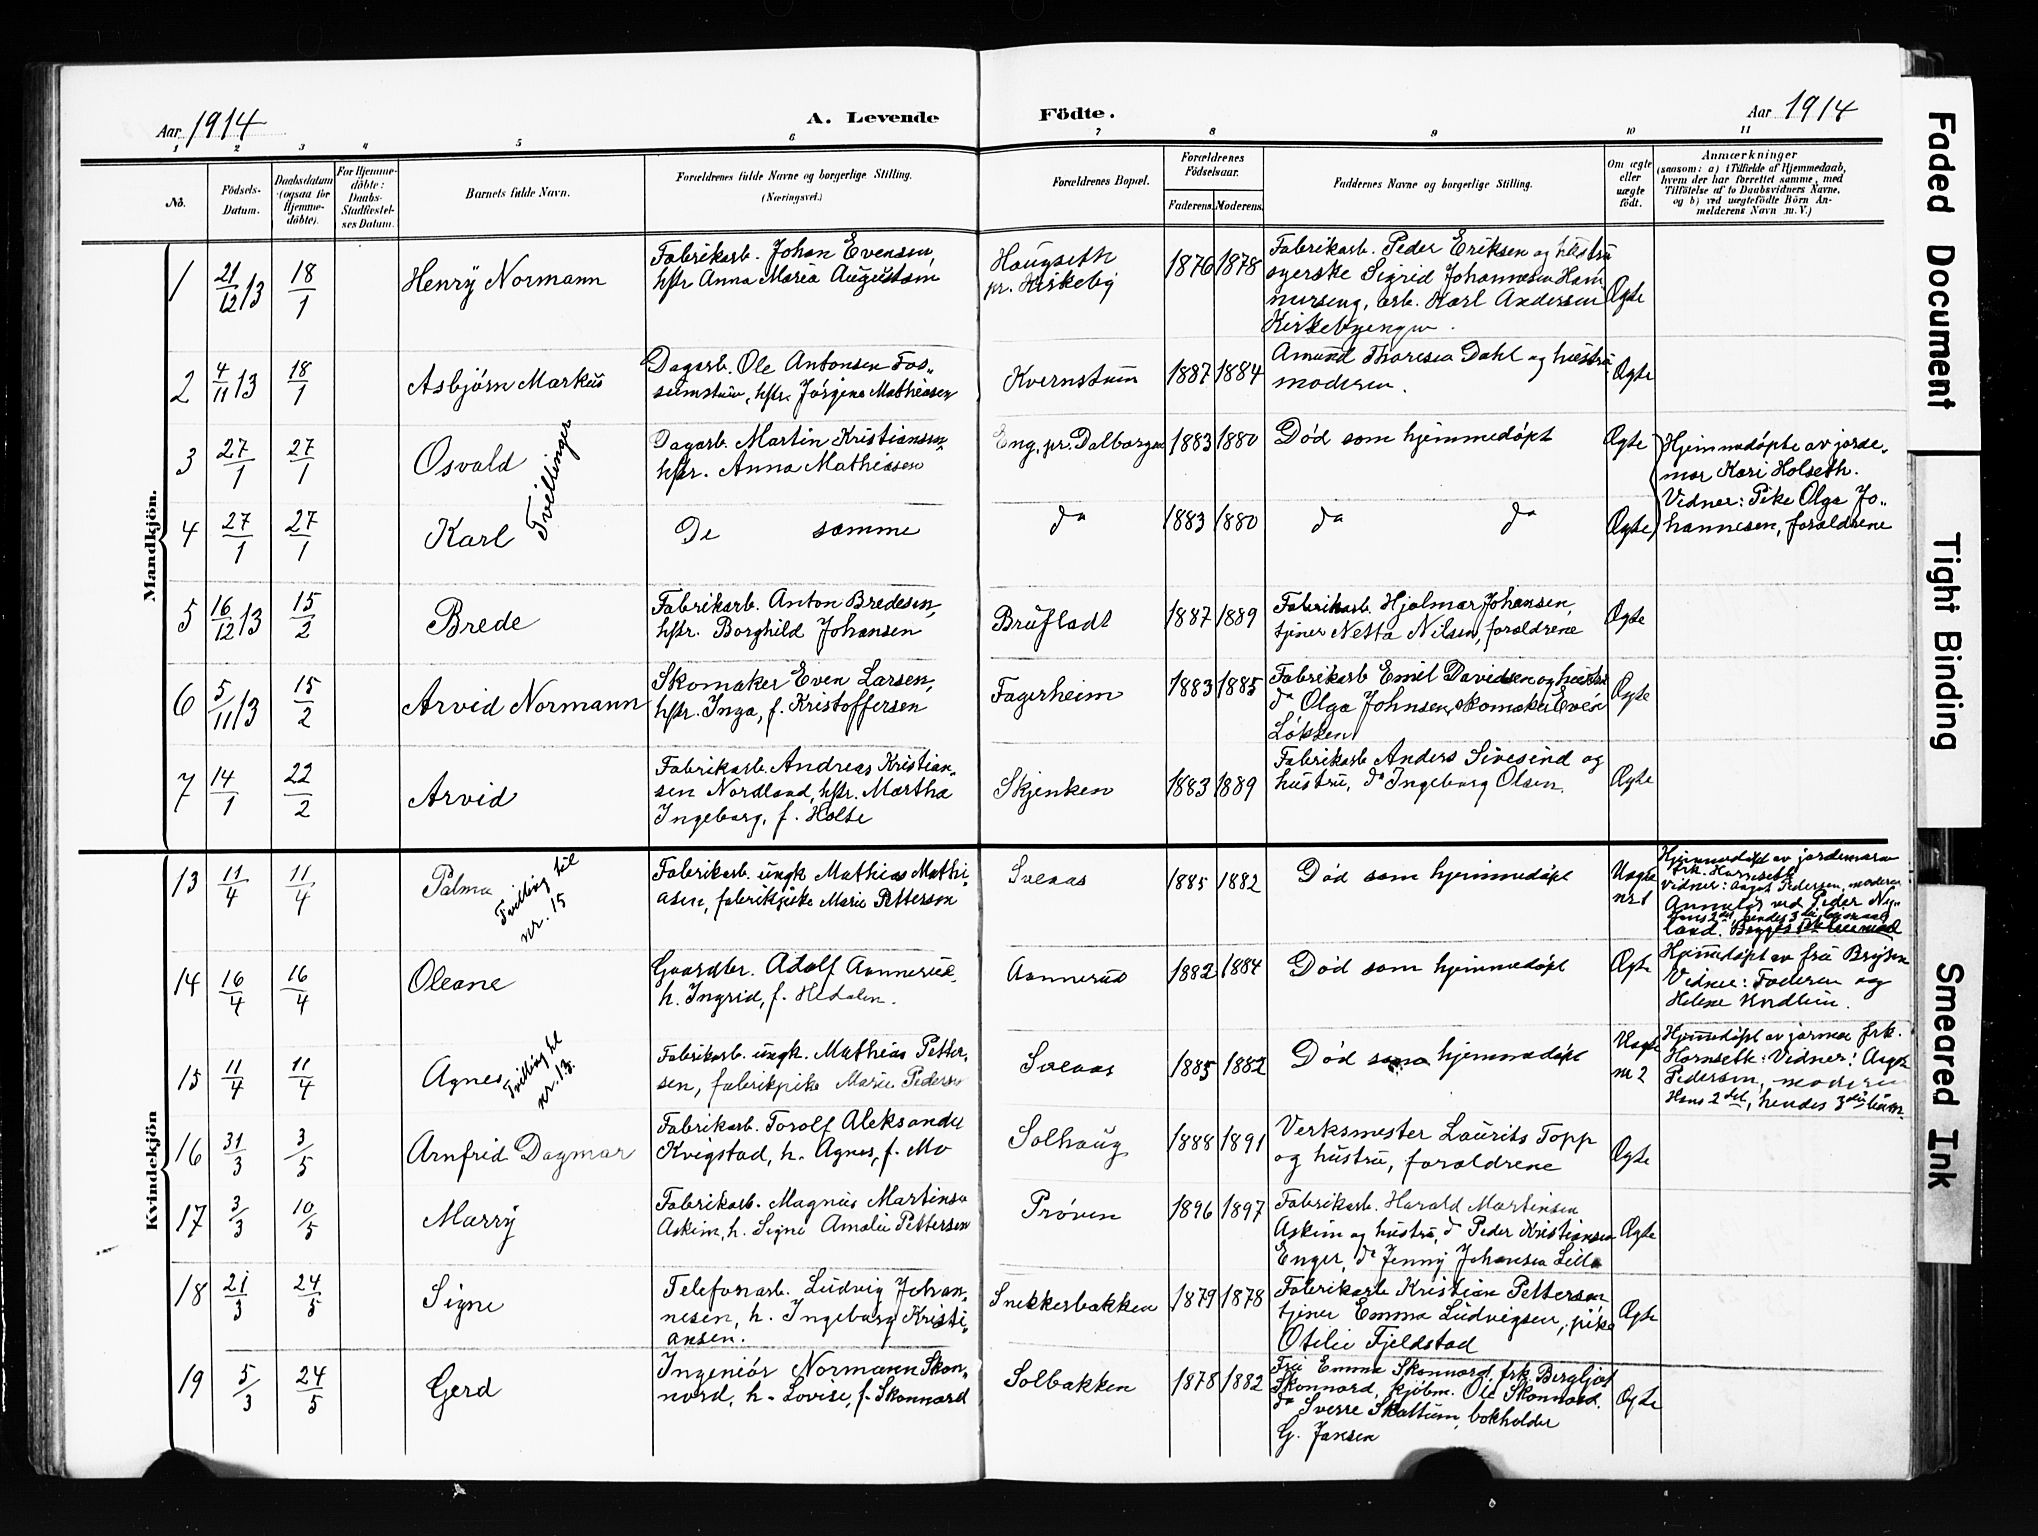 Aar 1914
A. Levende
Födte.
Aar 1914
1 2 3 4 5 6 7 8 9 10 11
No.
Födsels-
Datum.
Daabsdatum
(ogsaa for
Hjemme-
döbte).
For Hjemme-
döbte:
Daabs-
Stadfæstel-
ses Datum.
Barnets fulde Navn.
Forældrenes fulde Navne og borgerlige Stilling.
(Næringsvei.)
Forældrenes Bopæl.
Forældrenes
Födselsaar.
Faderens.
Moderens.
Faddernes Navne og borgerlige Stilling.
Om ægte
eller
uægte
födt.
Anmærkninger
(saasom: a) i Tilfælde af Hjemmedaab,
hvem der har forrettet samme, med
Tilföielse af to Daabsvidners Navne,
og b) ved uægtefödte Börn An-
melderens Navn m. V.)
Mandkjön.
1
21/12 13
18/1
Henrÿ Normann
Fabrikarb. Johan Evensen,
hstr Anna Maria Augustsen
Haugseth
pr. Kirkeby
1876
1878
Fabrikarb. Peder Eriksen og hustru
syerske Sigrid Johannesen Ham-
merseng, arb. Karl Andersen
Kirkebyengen.
Ægte
2
4/11 13
18/1
Asbjørn Markus
Dagarb. Ole Antonsen Fos-
sumstuen, hstr. Jørgine Mathiesen
Kvernstuen
1887
1884
Amund Thoresen Dahl og hustru
moderen.
Ægte
3
27/1
27/1
Osvald
Tvillinger
Dagarb. Martin Kristiansen,
hstr. Anna Mathiasen
Eng, pr. Dalborgen
1883
1880
Død som hjemmedøpt
Ægte
Hjemmedøpte av jorde-
mor Kari Holseth.
Vidner: Pike Olga Jo-
hannesen, forældrene
4
27/1
27/1
Karl
De samme
do
1883
1880
do do
Ægte
5
16/12 13
15/2
Brede
Fabrikarb. Anton Bredesen,
hstr. Borghild Johansen
Brufladt
1887
1889
Fabrikarb. Hjalmar Johansen,
tjener Netta Nilsen, forældrene
Ægte
6
5/11 13
15/2
Arvid Normann
Skomaker Even Larsen,
hstr. Inga, f. Kristoffersen
Fagerheim
1883
1885
Fabrikarb Emil Davidsen og hustru
do Olga Johnsen, skomaker Even
Løkken
Ægte
7
14/1
22/2
Arvid
Fabrikarb. Andreas Kristian-
sen Nordland, hstr. Martha
Ingeborg, f. Holte
Skjenken
1883
1889
Fabrikarb Anders Sivesind og
hustru, do Ingeborg Olsen.
Ægte
Kvindekjön
13
11/4
11/4
Palma
Tvilling til
nr. 15
Fabrikarb. ungk. Mathias Mathi-
asen, fabrikpike Marie Petterson
Sveaas
1885
1882
Død som hjemmedøpt
Uægte
nr 1
Hjemmedøpt av jordemoren
frk. Hornseth
Vidner: Aagot Pedersen, moderen
Anmeldt ved Peder Ny-
land.
14
16/4
16/4
Oleane
Gaardbr. Adolf Aannerud,
h. Ingrid, f. Hedalen.
Aannerud
1882
1884
Død som hjemmedøpt
Ægte
Hjemmedøpt av fru
Vidner: Faderen og
Helene
15
11/4
11/4
Agnes
Tvilling til
nr. 13.
Fabrikarb. ungk. Mathias Petter-
sen, fabrikpike Marie Pedersen
Sveaas
1885
1882
Død som hjemmedøpt
Uægte
nr 2
Hjemmedøpt av jormor frk.
Hornseth. Vidner: Aagot
Pedersen, moderen
Hans 2det, hendes 3die barn
16
31/3
3/5
Arnfrid Dagmar
Fabrikarb. Torolf Aleksander
Kvigstad, h. Agnes, f. Mo
Solhaug
1888
1891
Verksmester Laurits Topp
og hustru, forældrene
Ægte
17
3/3
10/5
Marrÿ
Fabrikarb. Magnus Martinsen
Askim, h. Signe Amalie Pettersen
Prøven
1896
1897
Fabrikarb. Harald Martinsen
Askim og hustru, do Peder Kristiansen
Enger, do Jenny Johansen Lille
Ægte
18
21/3
24/5
Signe
Telefonarb. Ludvig Johan-
nesen, h. Ingeborg Kristi-
ansen.
Snekkerbakken
1879
1878
Fabrikarb Kristian Pettersen,
tjener Emma Ludvigsen, pike
Otilie Fjeldstad
Ægte
19
5/3
24/5
Gerd
Ingeniør Normann Skon-
nord, h. Lovise, f. Skonnord
Solbakken
1878
1882
Fru Emma Skonnord, frk. Bergljot
Skonnord, kjøbm. Ole Skonnord.
do Sverre Skattum, bokholder
G. Jansen
Ægte
Faded Document
Tight Binding
Smeared Ink